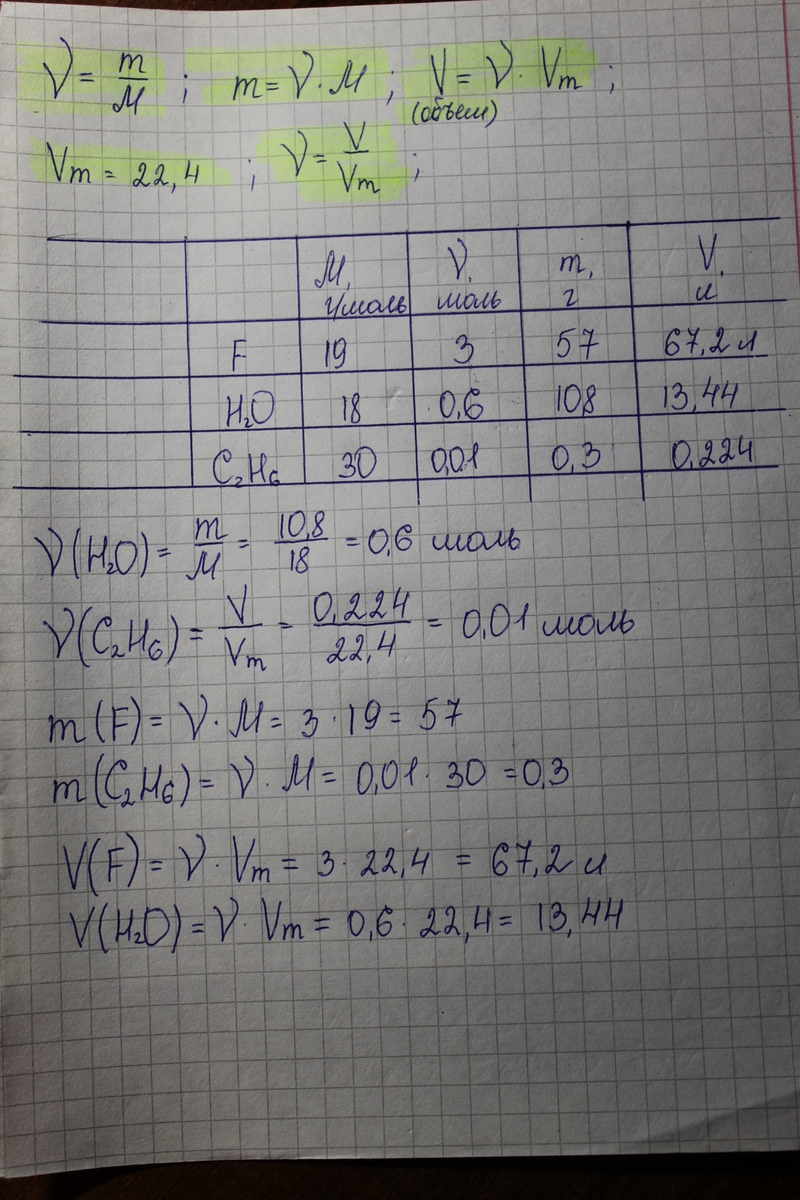 ν = m/M ; m = ν · M ; V = ν · Vm ;
(объем)
Vm = 22,4 ; ν = V/Vm ;
M, г/моль ν, моль m, г V, л
F 19 3 57 67,2 л
H₂O 18 0,6 108 13,44
C₂H₆ 30 0,01 0,3 0,224
ν(H₂O) = m/M = 10,8/18 = 0,6 моль
ν(C₂H₆) = V/Vm = 0,224/22,4 = 0,01 моль
m(F) = ν · M = 3 · 19 = 57
m(C₂H₆) = ν · M = 0,01 · 30 = 0,3
V(F) = ν · Vm = 3 · 22,4 = 67,2 л
V(H₂O) = ν · Vm = 0,6 · 22,4 = 13,44